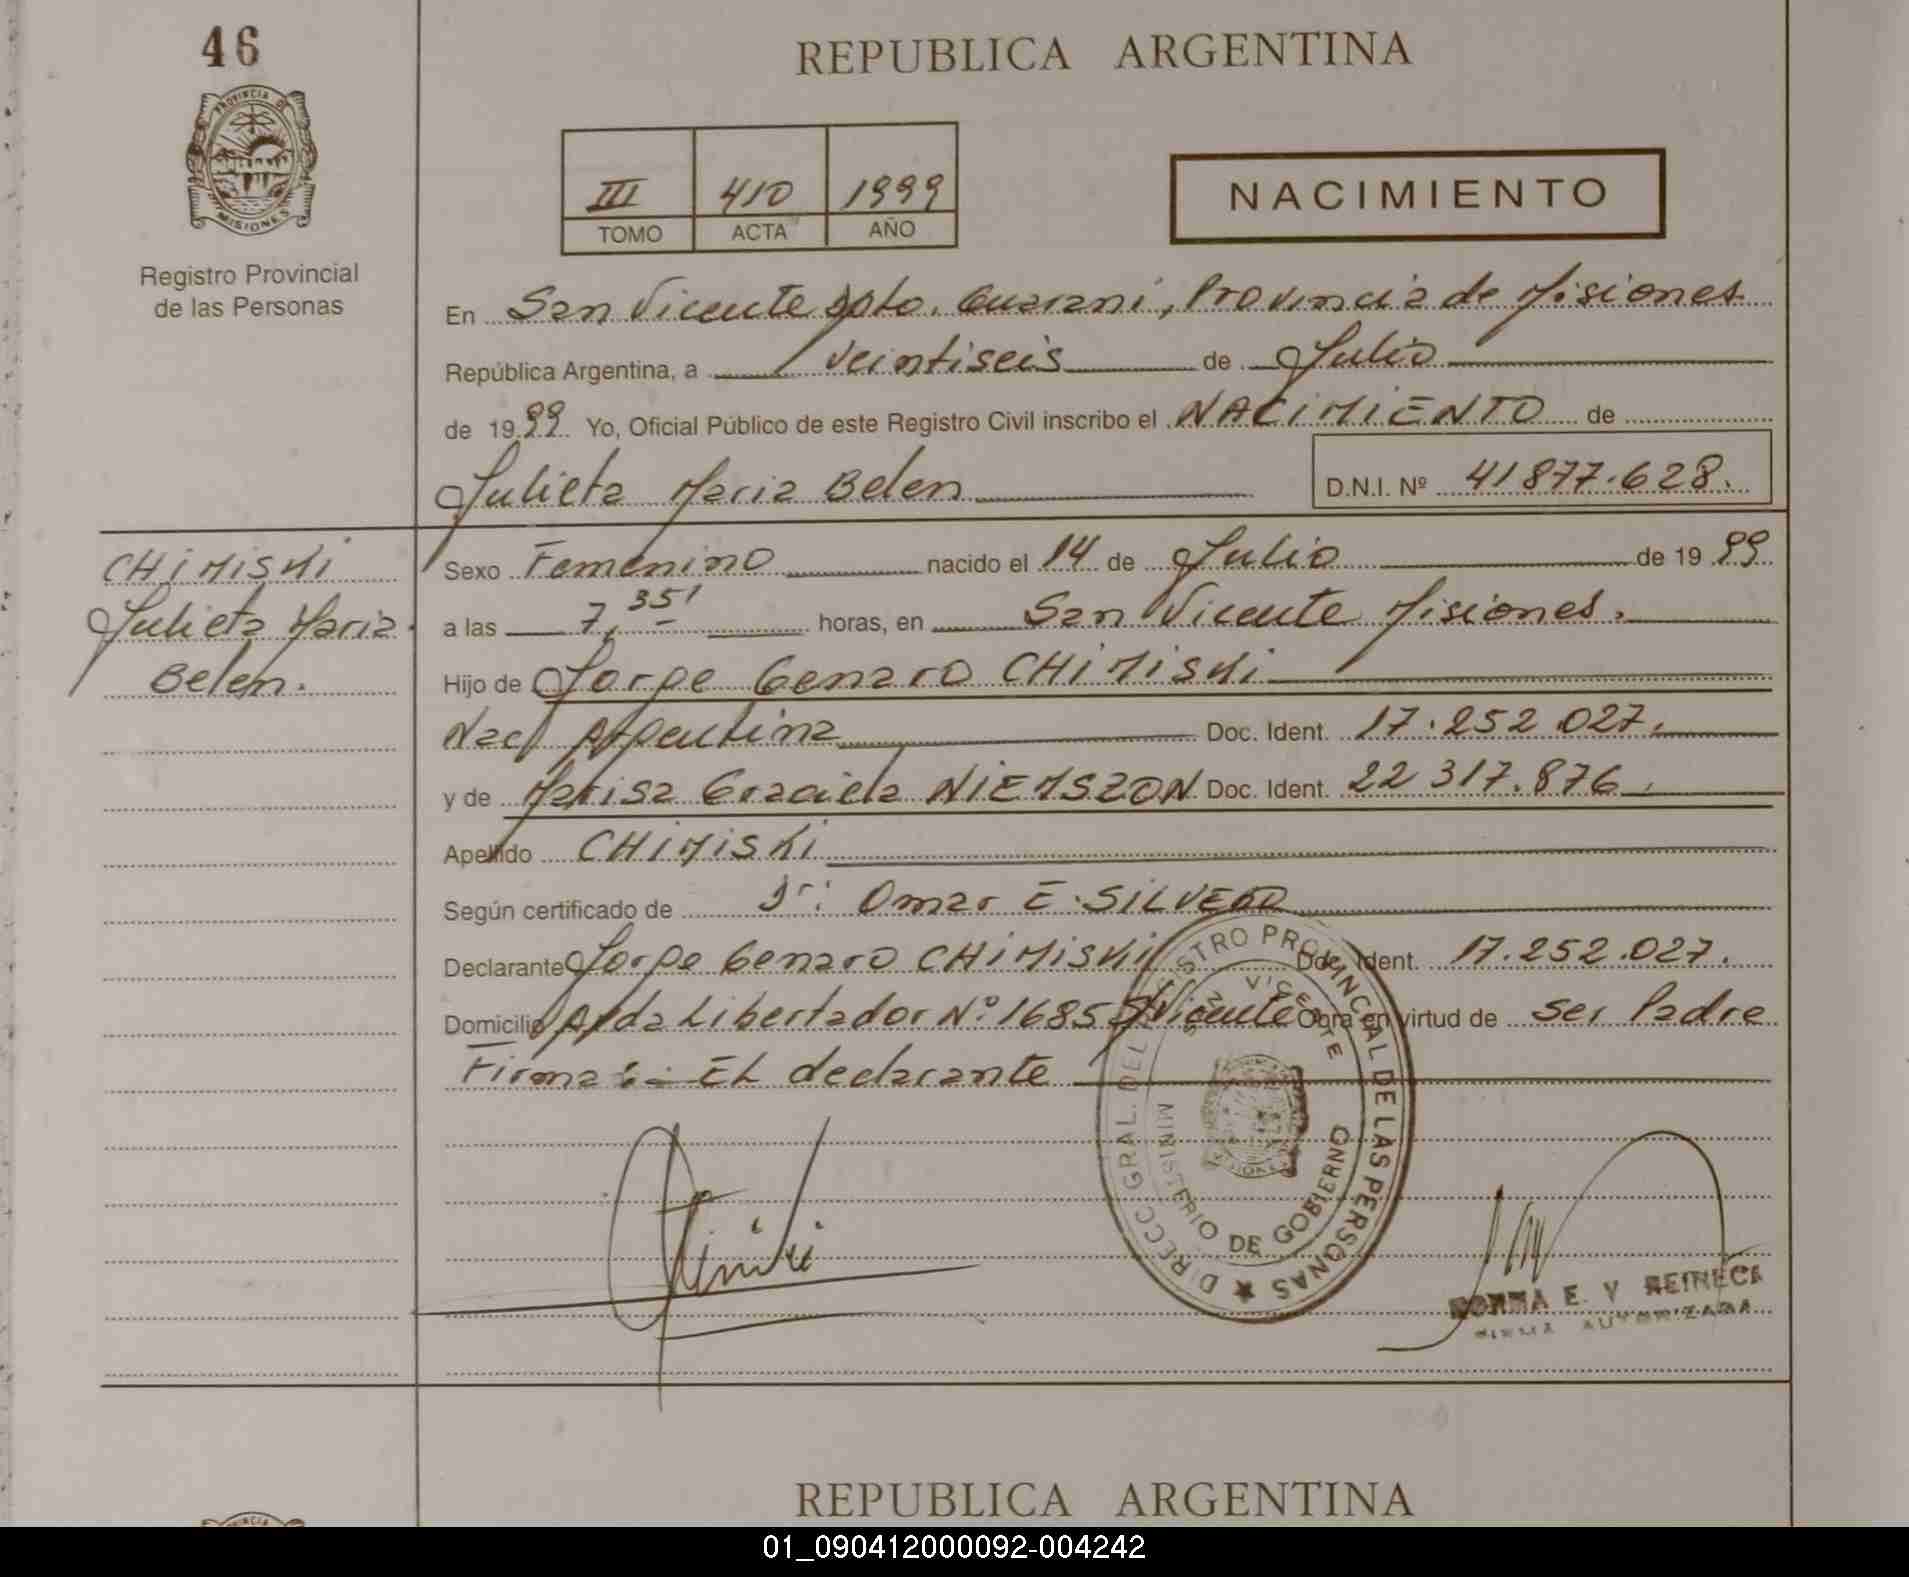 46
REPUBLICA ARGENTINA
PROVINCIA DE
MISIONES
Registro Provincial
de las Personas
III 410 1999
TOMO ACTA AÑO
NACIMIENTO
En San Vicente Dpto. Guarani, Provincia de Misiones
República Argentina, a veintiseis de Julio
de 1999 Yo, Oficial Público de este Registro Civil inscribo el NACIMIENTO de
Julieta Maria Belen D.N.I. Nº 41877.628.
CHIMISKI
Julieta Maria
Belen.
Sexo Femenino nacido el 14 de Julio de 1999
a las 7,35' horas, en San Vicente Misiones.
Hijo de Jorge Genaro CHIMISKI
Nac Argentina Doc. Ident. 17.252 027.
y de Marisa Graciela NIEMSZON Doc. Ident. 22 317.876.
Apellido CHIMISKI
Según certificado de Dr: Omar E. SILVERO
Declarante Jorge Genaro CHIMISKI Doc. Ident. 17.252.027.
Domicilio Avda Libertador Nº 1685 S/Vicente Obra en virtud de Ser Padre
Firma:- El declarante
DIRECC. GRAL. DEL REGISTRO PROVINCIAL DE LAS PERSONAS
SAN VICENTE
MINISTERIO DE GOBIERNO
NORMA E. V REINECK
FIRMA AUTORIZADA
REPUBLICA ARGENTINA
01_090412000092-004242